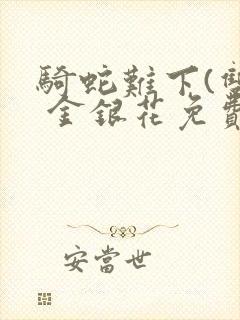 騎蛇難下(雙
金銀花免費
安當世